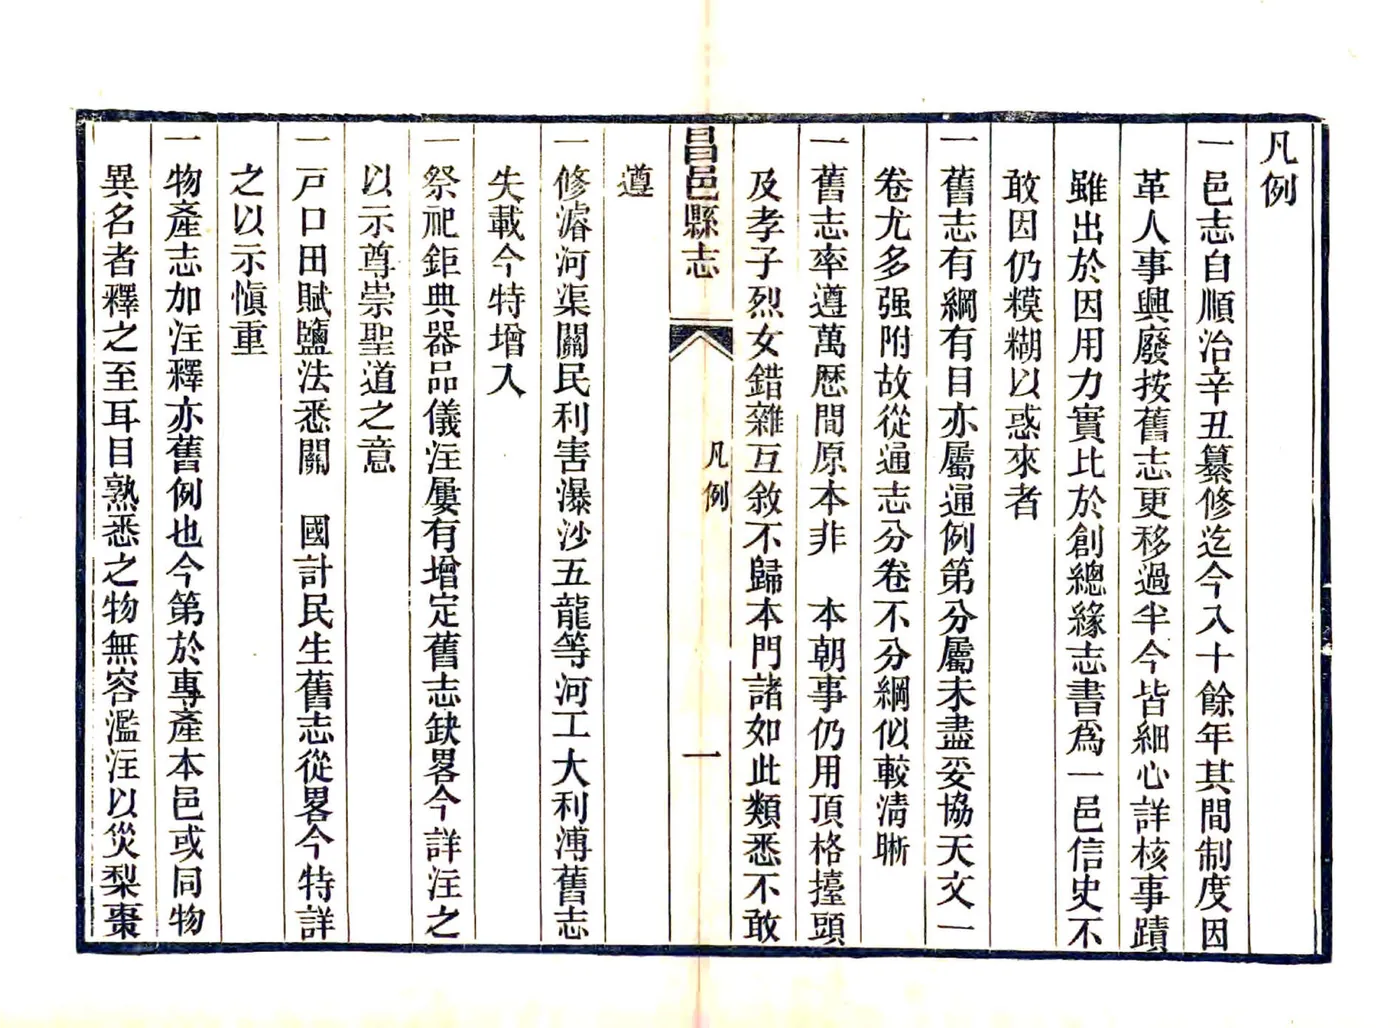 凡例
一邑志自順治辛丑纂修迄今八十餘年其間制度因
革人事興廢按舊志更移過半今皆細心詳核事蹟
雖出於因用力實比於創總緣志書爲一邑信史不
敢因仍糢糊以惑來者
一舊志有綱有目亦屬通例第分屬未盡妥協天文一
卷尤多强附故從通志分卷不分綱似較淸晰
一舊志率遵萬歷間原本非　本朝事仍用頂格擡頭
及孝子烈女錯雜互敘不歸本門諸如此類悉不敢
昌邑縣志
凡例
一
遵
一修濬河渠關民利害瀑沙五龍等河工大利溥舊志
失載今特增入
一祭祀鉅典器品儀注屢有增定舊志缺畧今詳注之
以示尊崇聖道之意
一戸口田賦鹽法悉關　國計民生舊志從畧今特詳
之以示愼重
一物產志加注釋亦舊例也今第於專產本邑或同物
異名者釋之至耳目熟悉之物無容濫注以災梨棗